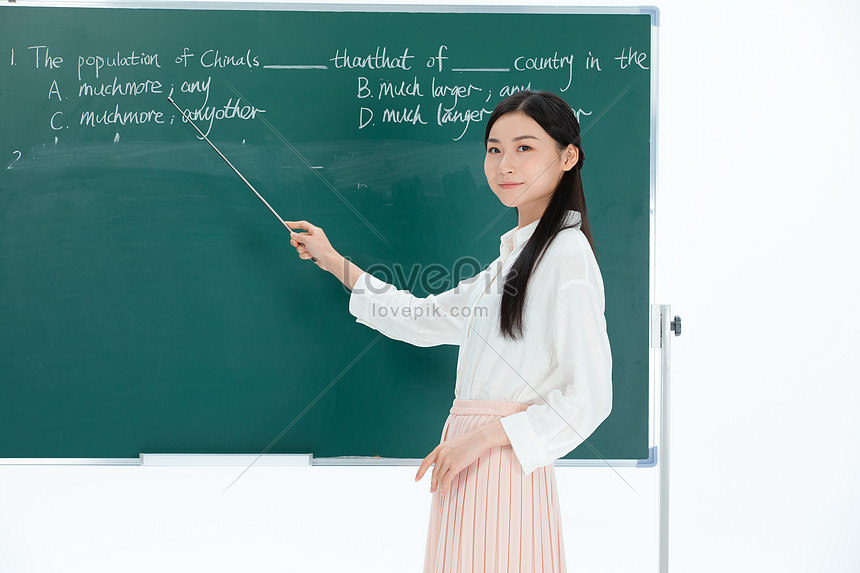 1. The population of Chinals ______ thanthat of ______ country in the
A. muchmore; any B. much larger; any
C. muchmore; anyother D. much langer;
2
LovePik
lovepik.com